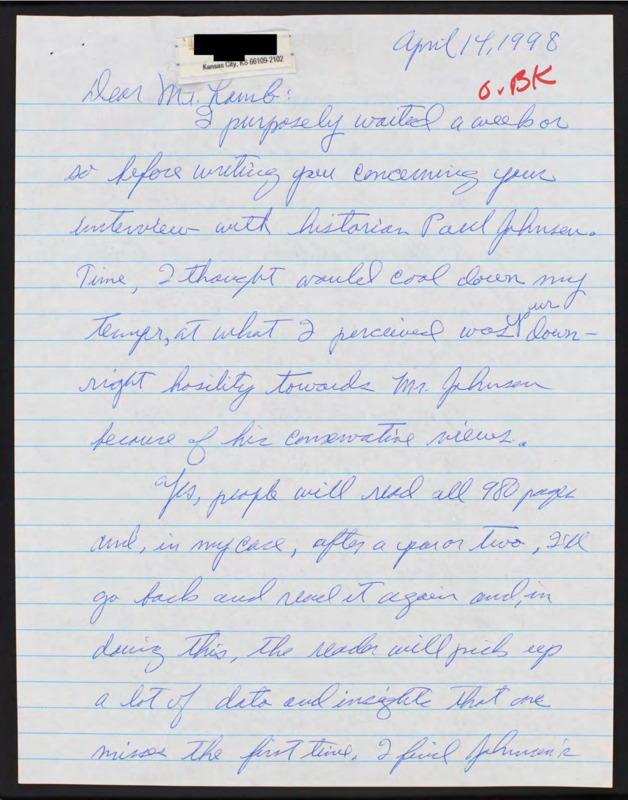 April 14, 1998
Kansas City, KS 66109-2102
O.BK
Dear Mr. Lamb:
I purposely waited a week or
so before writing you concerning your
interview with historian Paul Johnson.
Time, I thought would cool down my
temper, at what I perceived was your down-
right hosility towards Mr. Johnson
because of his conservative views.
Yes, people will read all 980 pages
and, in my case, after a year or two, I'll
go back and read it again and, in
doing this, the reader will pick up
a lot of data and insights that one
misses the first time. I find Johnson's